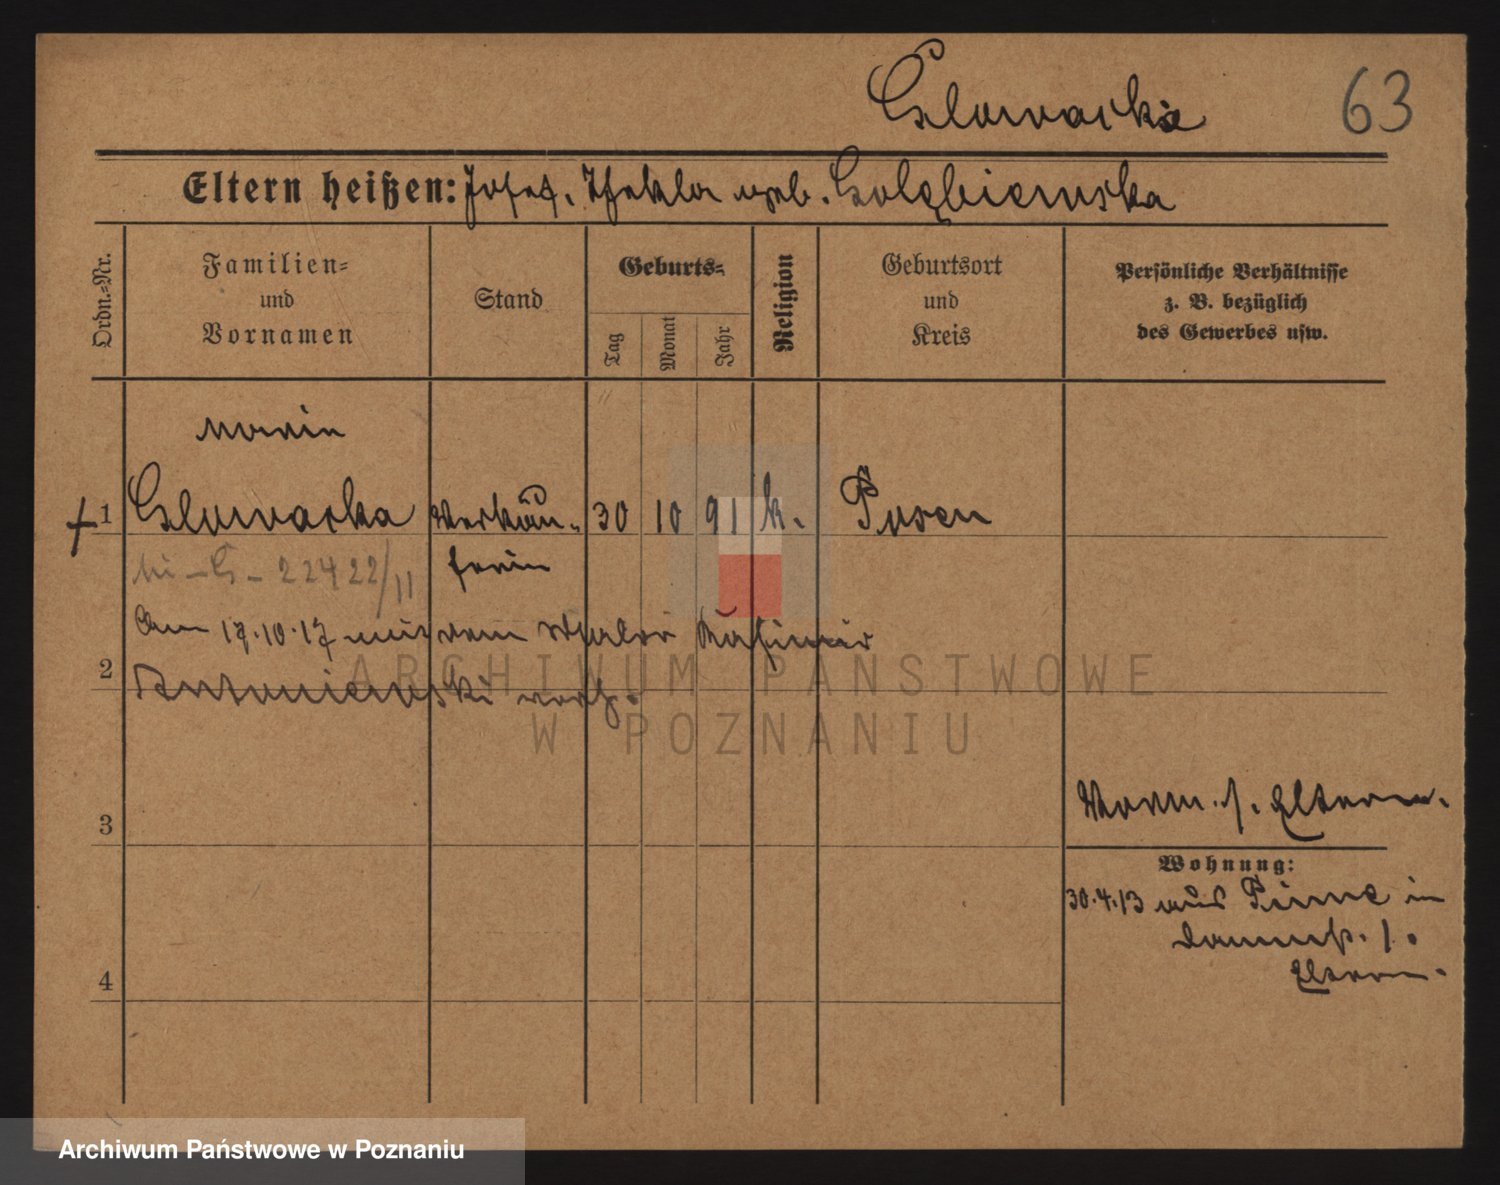 Glowacka
63
Eltern heißen: Josef, Thekla geb. Golębiewska
Ordn.-Nr.
Familien-
und
Vornamen
Stand
Geburts-
Tag
Monat
Jahr
Religion
Geburtsort
und
Kreis
Persönliche Verhältnisse
z. B. bezüglich
des Gewerbes usw.
Marie
1 Glowacka Verkäu- 30 10 91 k. Posen
22422/11 ferin
Am 17.10.17 mit dem Maler Kasimir
2 Antoniewski verh.
3
Eltern.
Wohnung:
30.4.13 aus Pinne in
4
Eltern.
ARCHIWUM PAŃSTWOWE
W POZNANIU
Archiwum Państwowe w Poznaniu